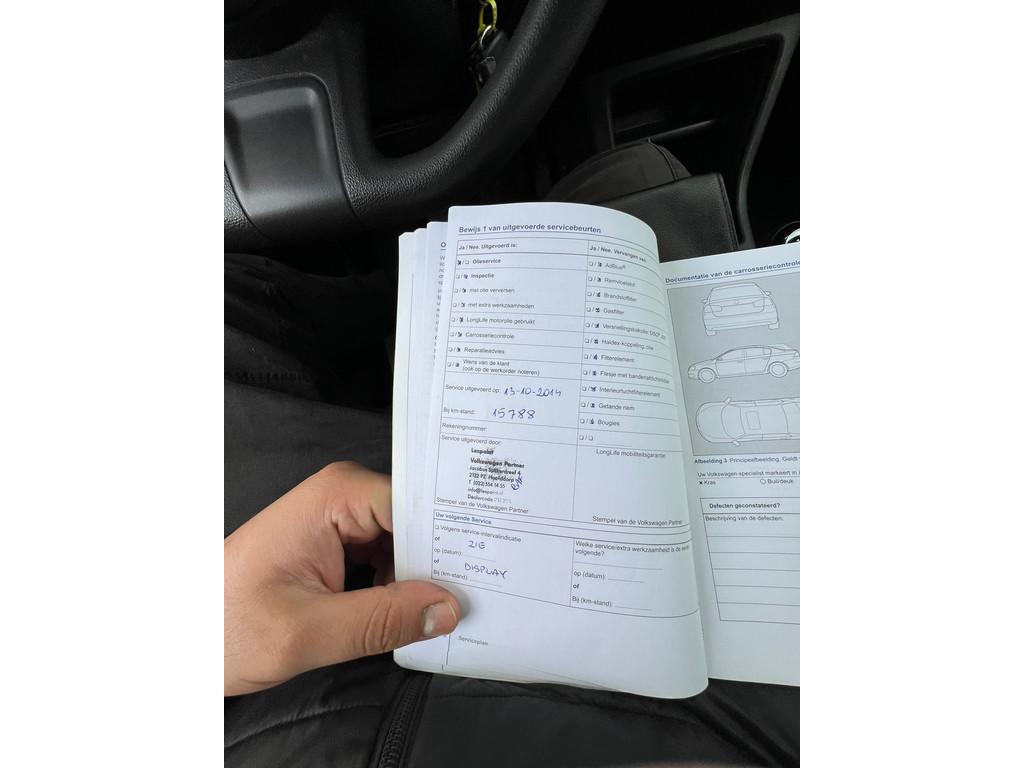 Bewijs 1 van uitgevoerde servicebeurten
Ja / Nee. Uitgevoerd is:
Olieservice
Inspectie
met olie verversen
met extra werkzaamheden
LongLife motorolie gebruikt
Carrosseriecontrole
Reparatieadvies
Wens van de klant
(ook op de werkorder noteren)
Service uitgevoerd op: 13-10-2014
Bij km-stand: 15788
Rekeningnummer:
Service uitgevoerd door:
Volkswagen Partner
Hoofddorp
Stempel van de Volkswagen Partner
Ja / Nee. Vervangen van:
AdBlue®
Remvloeistof
Brandstoffilter
Gasfilter
Haldex-koppeling: olie
Filterelement
Interieurluchtfilterelement
Getande riem
Bougies
LongLife mobiliteitsgarantie:
Stempel van de Volkswagen Partner
Uw volgende Service
Volgens service-intervalindicatie
of ZIE
op (datum):
of DISPLAY
Bij (km-stand):
Welke service/extra werkzaamheid is de eerst
volgende?
op (datum):
of
Bij (km-stand):
Serviceplan
Documentatie van de carrosseriecontrole
Afbeelding 3 Principeafbeelding. Geldt
Uw Volkswagen-specialist markeert in
× Kras
Buil/deuk
Defecten geconstateerd?
Beschrijving van de defecten.